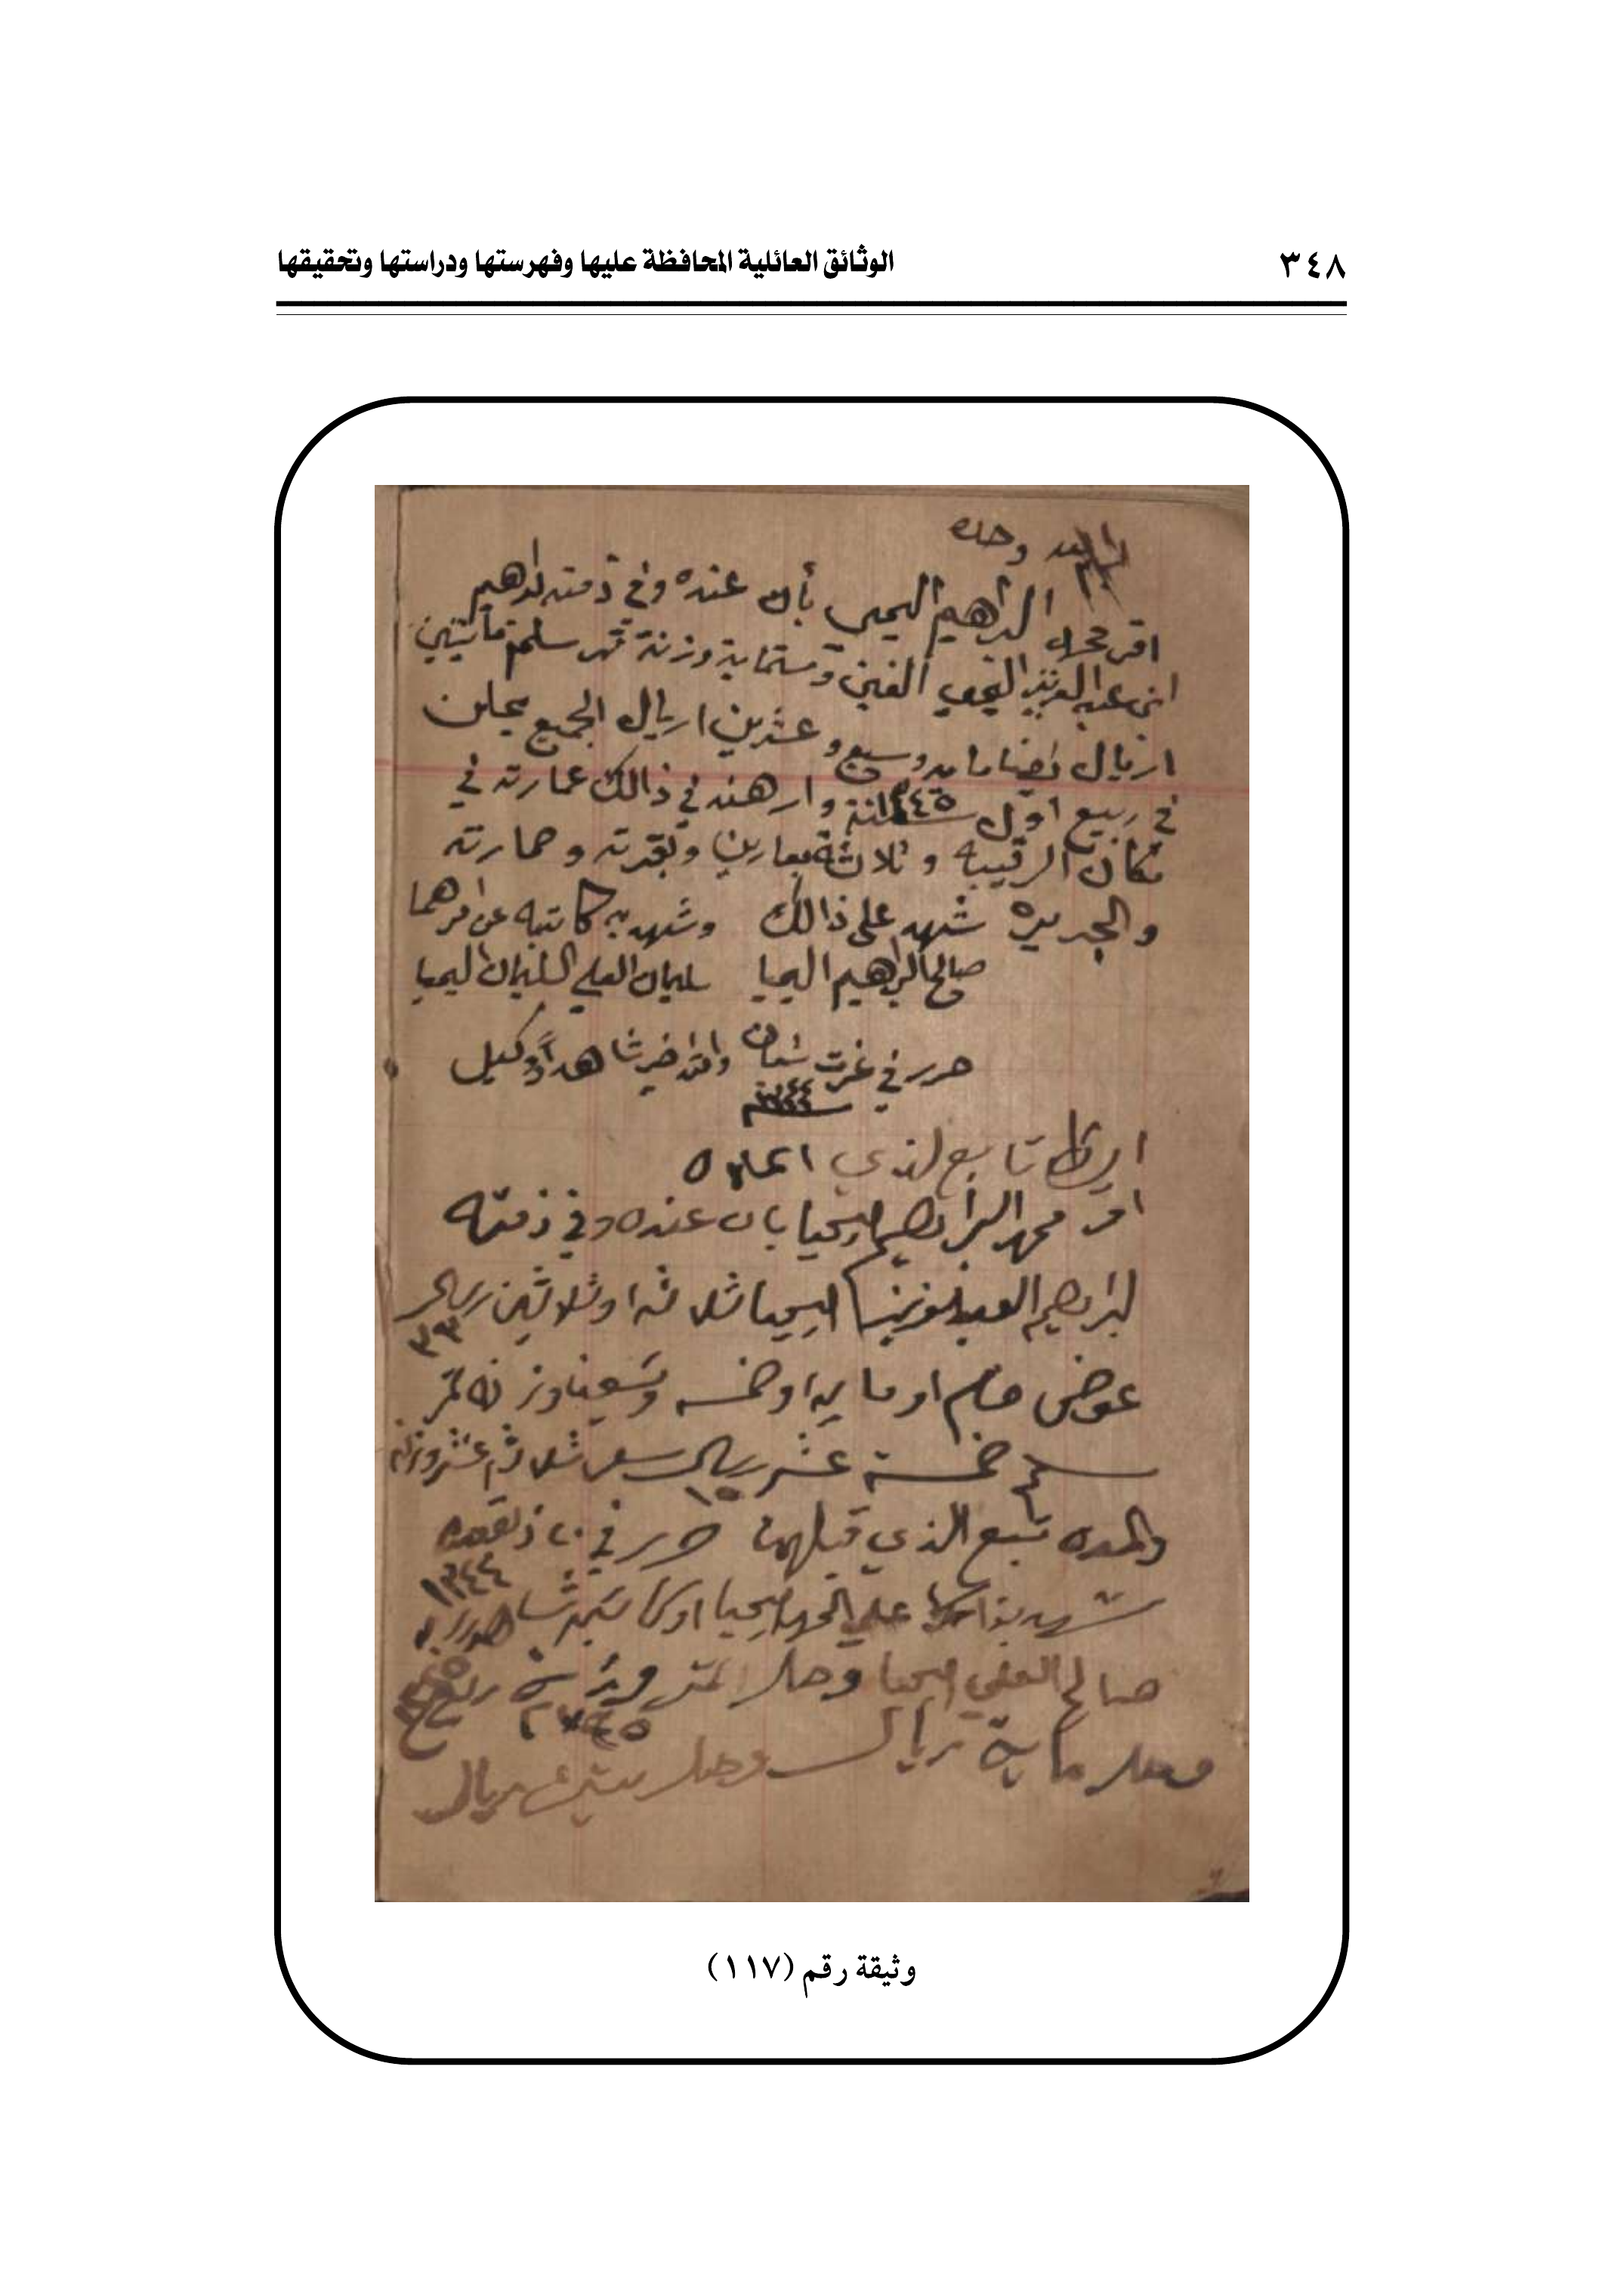 ٣٤٨
الوثائق العائلية المحافظة عليها وفهرستها ودراستها وتحقيقها
الحمد وحده
اقر محمد البراهيم اليحيى بأن عنده وفي ذمته لبراهيم
ابن عبد العزيز اليحيى الفين وستماية وزنة تمر سلم مأتيتين
اريال ايضا مايه وسبع وعشرين اريال الجميع يحلن
في ربيع اول سنة ١٣٤٥ وارهنه في ذالك عمارته في
مكان الرقيبه وثلاثة بعارين وبقرته وحمارته
والجريره شهد على ذالك وشهد به كاتبه عن امرهما
صالح البراهيم اليحيا سليمان العلي السليمان اليحيا
حرر في غرت شعبان والله خير شاهداً ووكيل
١٣٤٤
ايظا تابع لذي اعلاه
اقر محمد البراهيم اليحيا بان عنده وفي ذمته
لبراهيم العبدلعزيز اليحيا ثلاثه اوثلاثين ريال
٣٣
عوض اومايه اوخمسه وتسعين وزنه تمر
سلم خمسة عشر ريال سعر ثلاثة عشر وزنه
١٥
والمده تبع الذي قبلهن حرر في ٢٠ ذلقعده
١٣٤٤
شهد بذالك علي الحمد اليحيا اوكاتبه شاهد به
صالح العلي اليحيا وصل التمر
وصل ماية ريال وصل ريال
وثيقة رقم (١١٧)